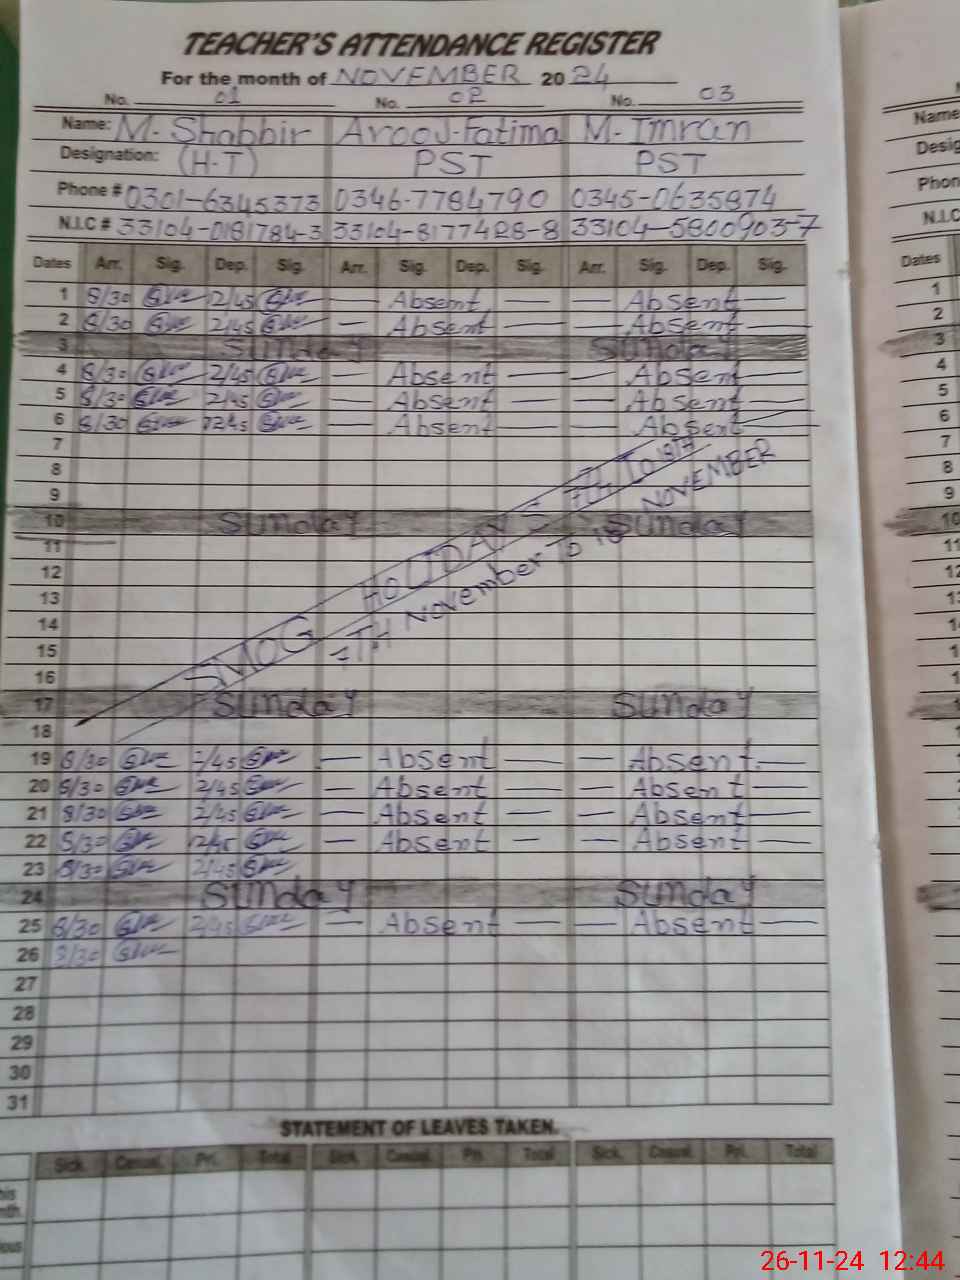 TEACHER'S ATTENDANCE REGISTER
For the month of NOVEMBER 2024
No. 01 No. 02 No. 03
Name: M. Shabbir Arooj-Fatima M. Imran
Designation: (H-T) PST PST
Phone # 0301-6345373 0346-7784790 0345-0635874
N.I.C # 33104-0181784-3 33104-8177428-8 33104-5800903-7
Dates Arr. Sig. Dep. Sig. Arr. Sig. Dep. Sig. Arr. Sig. Dep. Sig.
1 8/30 12/45 — Absent — — Absent —
2 8/30 2/45 — Absent — — Absent —
3 Sunday Sunday
4 8/30 2/45 — Absent — — Absent —
5 8/30 2/45 — Absent — — Absent —
6 8/30 1245 — Absent — — Absent —
7
8
9
10 Sunday Sunday
11
12
13
14
15
16
SMOG HOLIDAY = 7th To 18TH
7TH November To 18 NOVEMBER
17 Sunday Sunday
18
19 8/30 2/45 — Absent — — Absent —
20 8/30 2/45 — Absent — — Absent —
21 8/30 2/45 — Absent — — Absent —
22 8/30 2/45 — Absent — — Absent —
23 8/30 2/45
24 Sunday Sunday
25 8/30 2/45 — Absent — — Absent —
26 8/30
27
28
29
30
31
STATEMENT OF LEAVES TAKEN.
Sick. Casual. Pri. Total Sick. Casual. Pri. Total Sick. Casual. Pri. Total
his
nth.
ious
Name
Desig
Phon
N.I.C
Dates
1
2
3
4
5
6
7
8
9
10
11
12
26-11-24 12:44